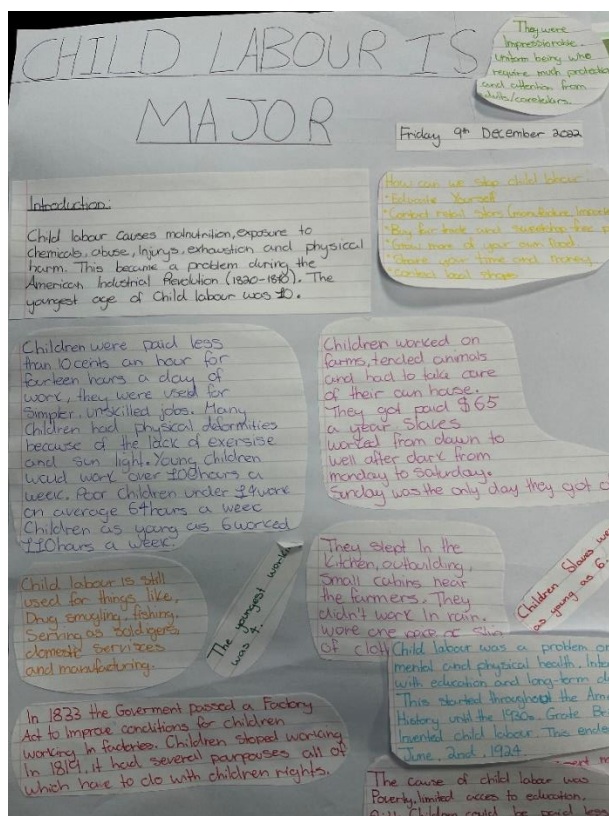 CHILD LABOUR IS
MAJOR
They were
Impressionable
Uniform being who
require much protection
and attention from
Friday 9th December 2022
Introduction:
Child labour causes malnutrition, exposure to
chemicals, abuse, Injurys, exhaustion and physical
harm. This became a problem during the
American Industrial Revolution (1820-1870). The
youngest age of Child labour was 10.
How can we stop child labour:
•Educate Yourself
•Contact retail stors (manufacture,
•Buy fair trade and sweatshop free
•Grow more of your own food
•Share your time and money
•Contact local shops
Children were paid less
than 10 cents an hour for
fourteen hours a day of
work, they were used for
Simpler, unskilled jobs. Many
Children had physical deformities
because of the lack of exersise
and sun light. Young Children
woud work over 100 hours a
week. Poor Children under 14 work
on average 64 hours a week
Children as young as 6 worked
110 hours a week.
Children worked on
farms, tended animals
and had to take care
of their own house.
They got paid $65
a year Slaves
worked from dawn to
well after dark from
monday to Saturday.
Sunday was the only day they got
Child labour is still
used for things like,
Drug smugling, fishing,
Serving as soldgers,
domestic services
and manufacturing.
The youngest
was 4.
They slept In the
Kitchen, outbuilding,
Small cabins near
the farmers. They
didn't work In rain.
wore one pair
of cloth
Children Slaves
as young as 6.
Child labour was a problem
mental and physical health.
with education and long-term
This started throughout the
History until the 1930s. Grate
Invented child labour. This
June, 2nd, 1924.
In 1833 the Goverment passed a Factory
Act to Improve conditions for children
working In factories. Children stoped working
In 1819, it had several paurpouses all of
which have to do with children rights.
The cause of child labour was
Poverty, limited acces to education,
Children could be paid less